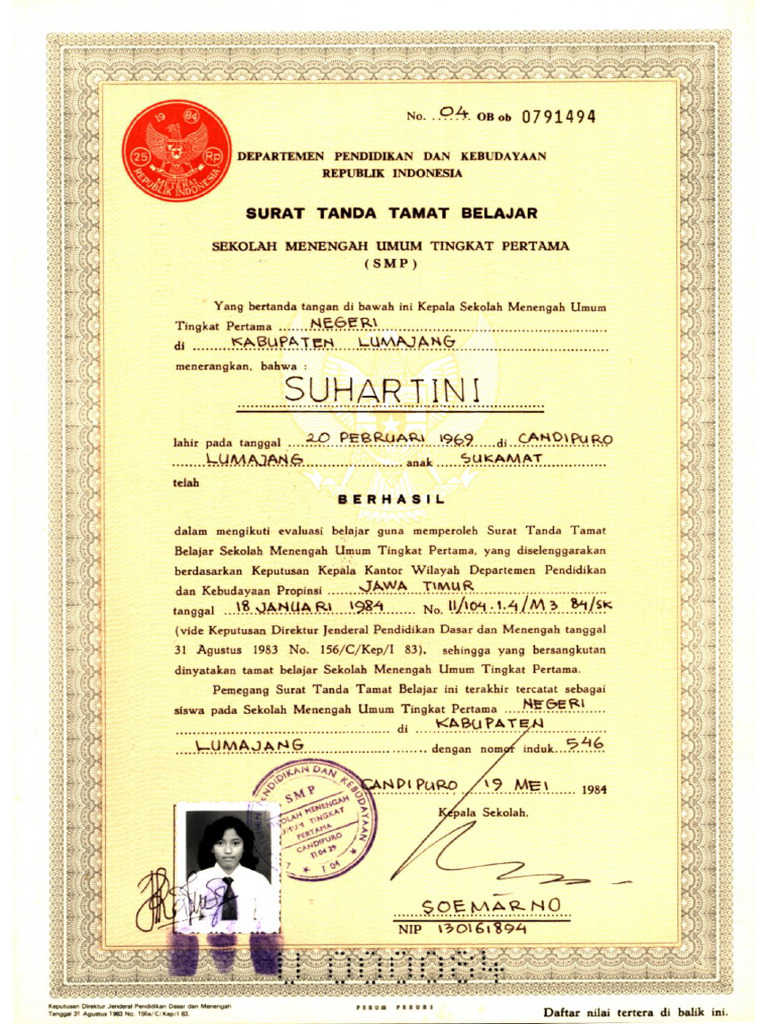 No. 04 OB ob 0791494
19 84
25 Rp
METERAI
REPUBLIK INDONESIA
DEPARTEMEN PENDIDIKAN DAN KEBUDAYAAN
REPUBLIK INDONESIA
SURAT TANDA TAMAT BELAJAR
SEKOLAH MENENGAH UMUM TINGKAT PERTAMA
(SMP)
Yang bertanda tangan di bawah ini Kepala Sekolah Menengah Umum
Tingkat Pertama NEGERI
di KABUPATEN LUMAJANG
menerangkan, bahwa :
SUHARTINI
lahir pada tanggal 20 PEBRUARI 1969 di CANDIPURO
LUMAJANG anak SUKAMAT
telah
BERHASIL
dalam mengikuti evaluasi belajar guna memperoleh Surat Tanda Tamat
Belajar Sekolah Menengah Umum Tingkat Pertama, yang diselenggarakan
berdasarkan Keputusan Kepala Kantor Wilayah Departemen Pendidikan
dan Kebudayaan Propinsi JAWA TIMUR
tanggal 18 JANUARI 1984 No. 11/104.1.4/M3 84/SK
(vide Keputusan Direktur Jenderal Pendidikan Dasar dan Menengah tanggal
31 Agustus 1983 No. 156/C/Kep/I 83), sehingga yang bersangkutan
dinyatakan tamat belajar Sekolah Menengah Umum Tingkat Pertama.
Pemegang Surat Tanda Tamat Belajar ini terakhir tercatat sebagai
siswa pada Sekolah Menengah Umum Tingkat Pertama NEGERI
di KABUPATEN
LUMAJANG dengan nomor induk 546
CANDIPURO 19 MEI 1984
Kepala Sekolah,
PENDIDIKAN DAN KEBUDAYAAN
SMP
SEKOLAH MENENGAH
UMUM TINGKAT
PERTAMA
CANDIPURO
104
SOEMARNO
NIP 130161894
000084
Keputusan Direktur Jenderal Pendidikan Dasar dan Menengah
Tanggal 31 Agustus 1983 No. 156/C/Kep/I 83.
PERUM PERURI
Daftar nilai tertera di balik ini.